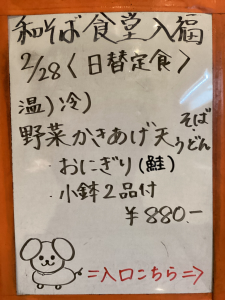 和そば食堂入福
2/28〈日替定食〉
温)冷)
野菜かきあげ天 そば・うどん
・おにぎり(鮭)
・小鉢2品付
¥880.-
⇒入口こちら⇒